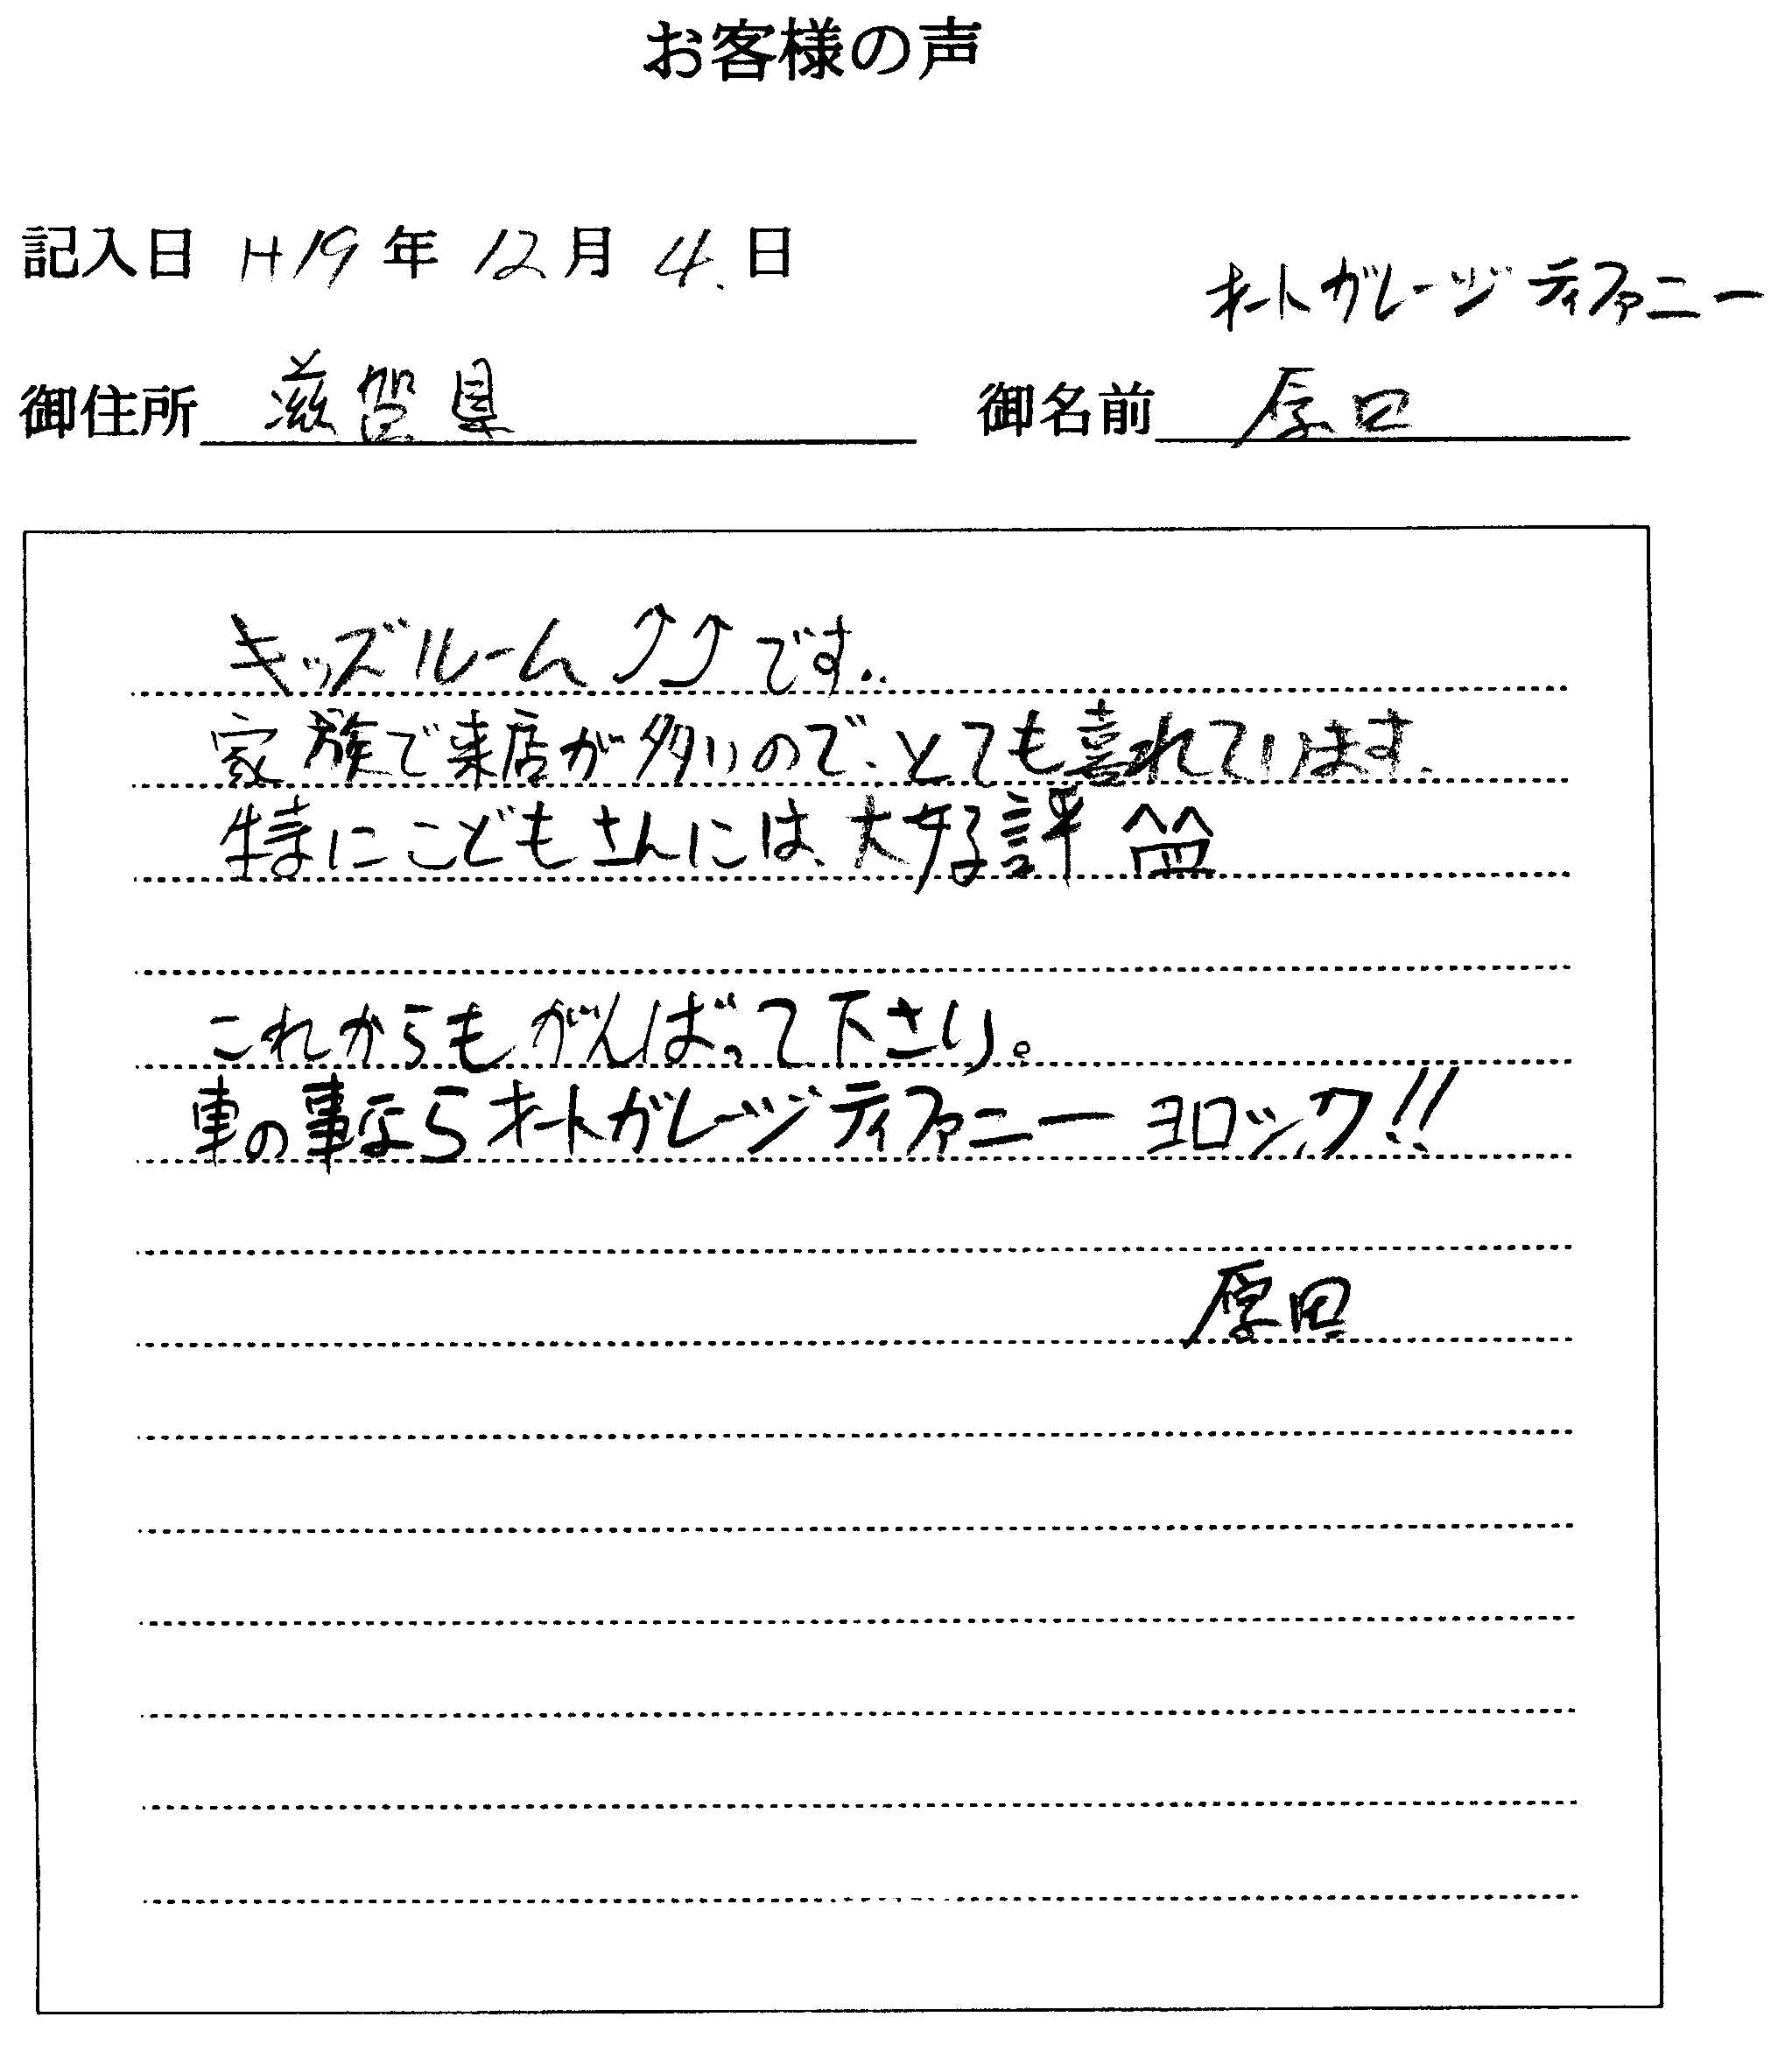 お客様の声
記入日 H19年 12月 4.日
オートガレージ ティファニー
御住所 滋賀県 御名前 原田
キッズルーム⤴⤴です..
家族で来店が多いので、とても喜れています.
特にこどもさんには、大好評 ^皿^
これからもがんばって下さい。
車の事ならオートガレージティファニー ヨロシク!!
原田